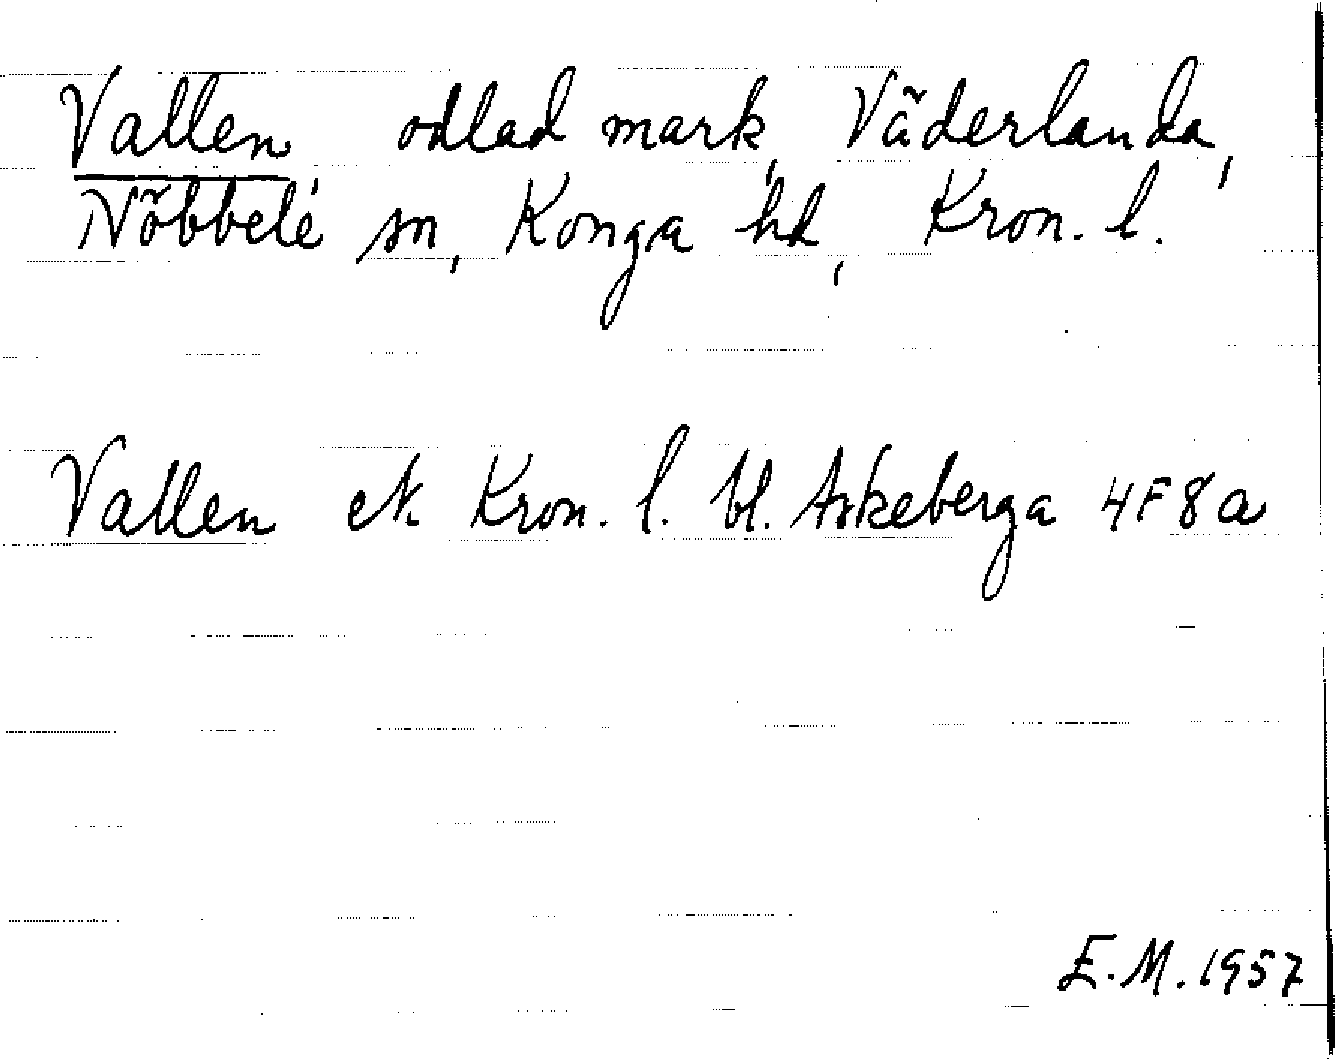 Vallen, odlad mark, Väderlanda,
Nöbbele sn, Konga hd, Kron. l.
Vallen ek Kron. l. bl. Askeberga 4F8a
E.M. 1957